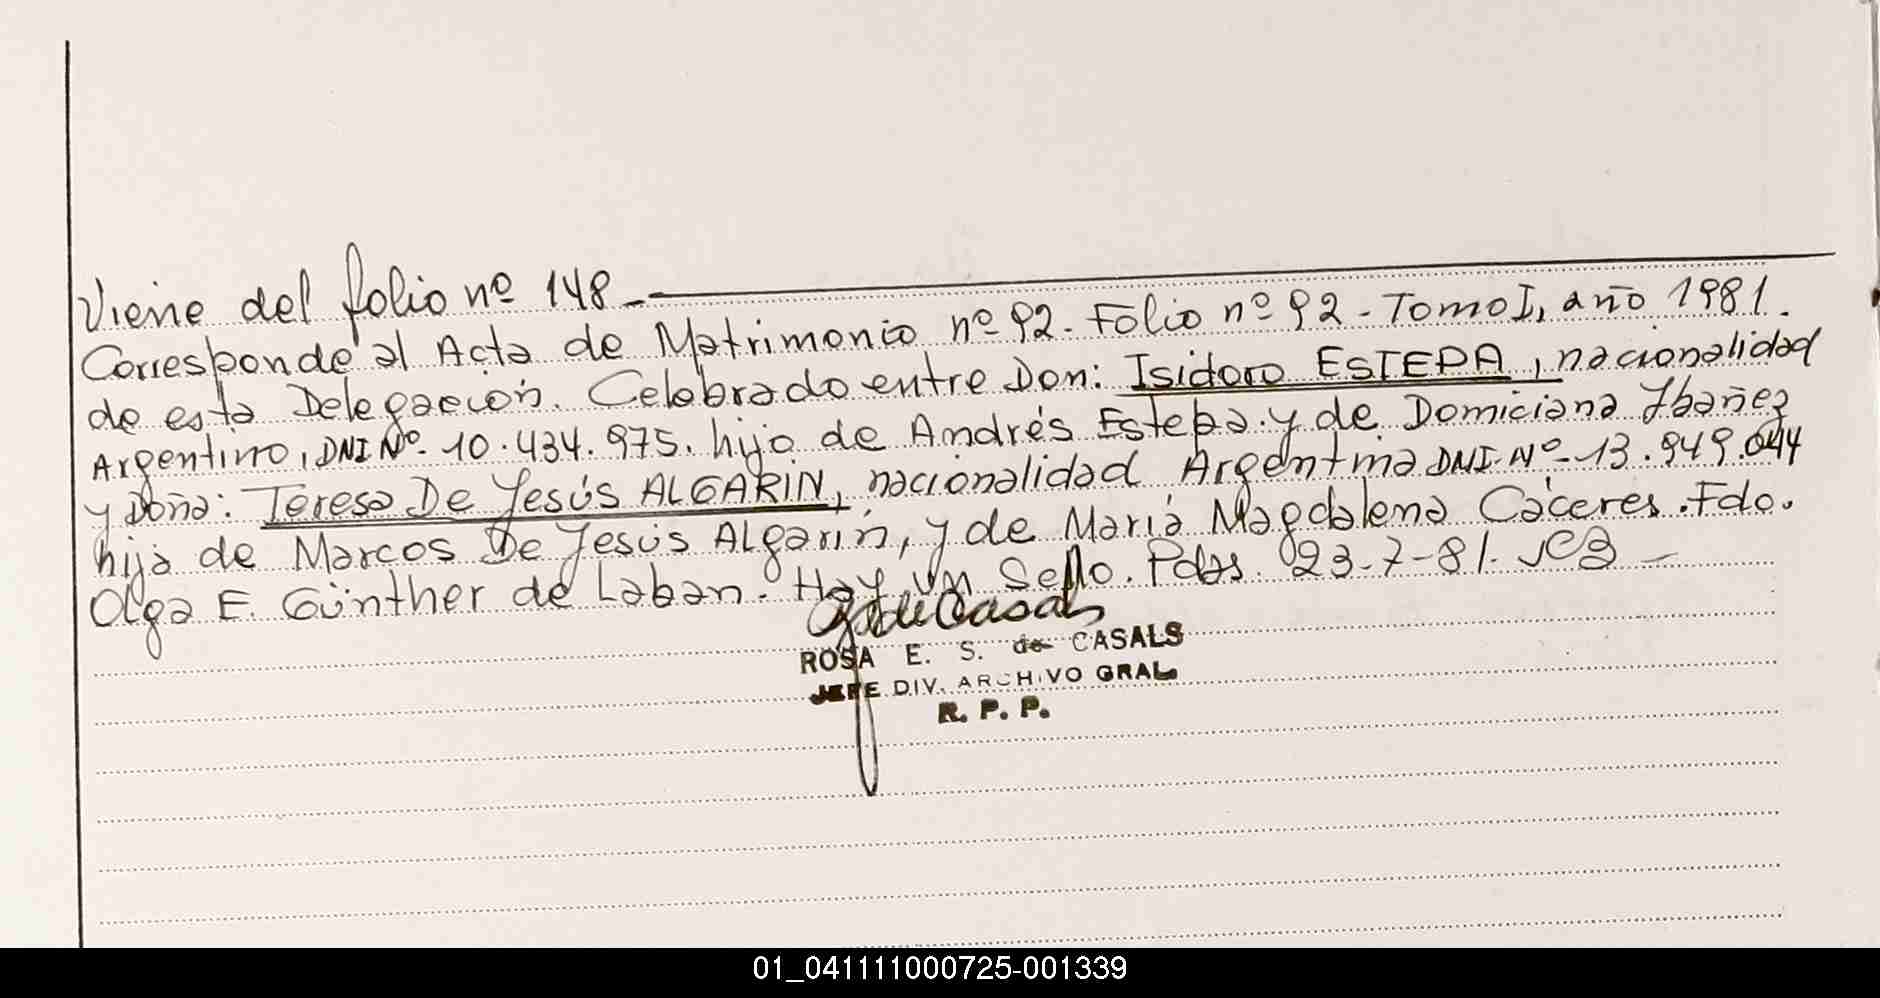 Viene del folio nº 148.-
Corresponde al Acta de Matrimonio nº 92. Folio nº 92 - Tomo I, año 1981.
de esta Delegación. Celebrado entre Don: Isidoro ESTEPA, nacionalidad
Argentino, DNI Nº- 10.434.975. hijo de Andrés Estepa. y de Domiciana Ibañez
y Doña: Teresa De Jesús ALGARIN, nacionalidad Argentina DNI-Nº-13.949.044
hija de Marcos De Jesús Algarin, y de María Magdalena Cáceres. Fdo.
Olga E. Günther de Laban. Hay un Sello. Pdas. 23-7-81.
ROSA E. S. de CASALS
JEFE DIV. ARCHIVO GRAL
R. P. P.
01_041111000725-001339